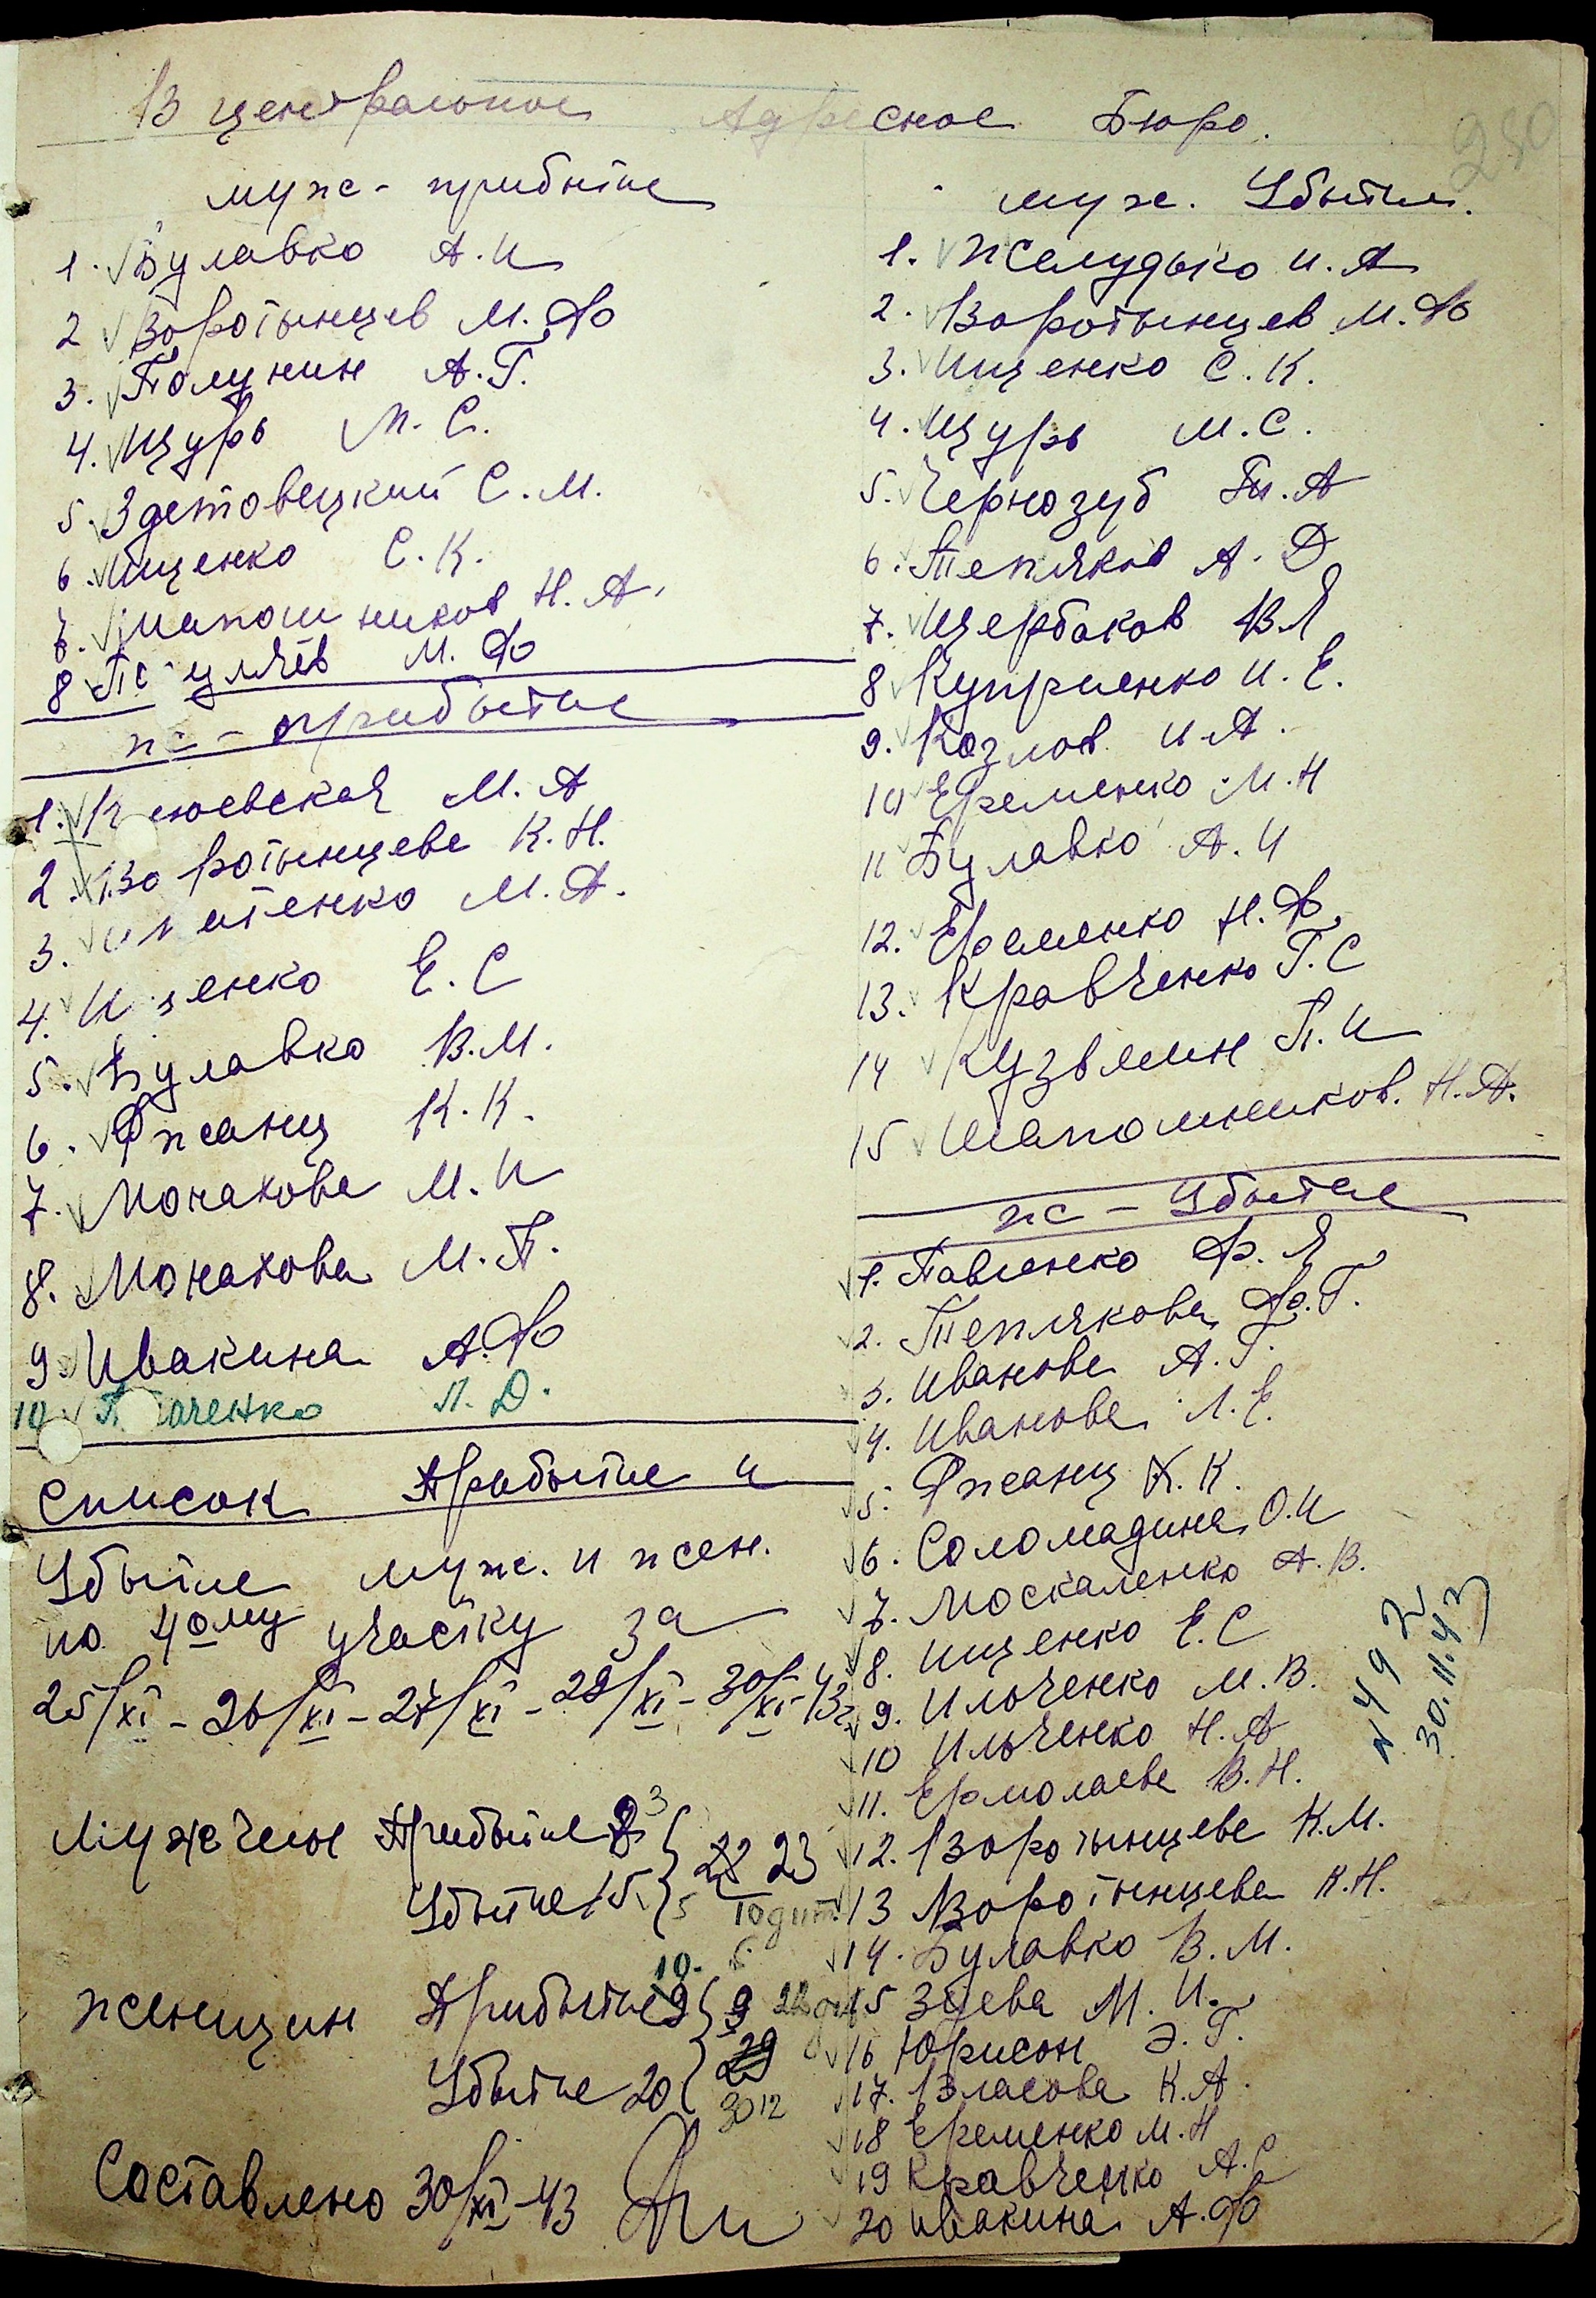 В центральное Адресное Бюро.
230
муж - прибытие
1. Булавко А.И
2 Воротынцев М.Ф
3. Полунин А.Г.
4. Щурь М.С.
5. Здетовецкий С.М.
6. Ищенко С.К.
7. Шапошников Н.А.
8 М.Ф
ж - прибытие
1. М.А
2. Воротынцева К.Н.
3. М.А.
4. И енко Е.С
5. Булавко В.М.
6. Ржанц К.К.
7. Монахова М.И
8. Монахова М.П.
9. Ивакина А.Ф
10 Л.Д.
Список Прибытие и
Убытие муж. и жен.
по 4ому участку за
25/XI - 26/XI - 27/XI - 29/XI - 30/XI - 43г
Мужчин Прибытие 8 3
22 23
Убытие 15 5
женщин Прибытие 9 10. 9
29
Убытие 20
30 12
Составлено 30/XI-43
муж. Убытие.
1. Желудько И.А
2. Воротынцев М.Ф
3. Ищенко С.К.
4. Щурь М.С.
5. Чернозуб П.А
6. Тепляков А.Д
7. Щербаков В.Я
8 Куприенко И.Е.
9. Козлов И.А.
10 Еременко М.Н
11 Булавко А.И
12. Еременко Н.Ф.
13. Кравченко Г.С
14 Кузьмин П.И
15 Шапошников Н.А.
ж - Убытие
1. Павленко Ф.Я
2. Теплякова Ф.Г.
3. Иванова А.Г.
4. Иванова Л.Е.
5. Ржанц К.К.
6. Соломадина О.И
7. Москаленко А.В.
8. Ищенко Е.С
9. Ильченко М.В.
10 Ильченко Н.А
11. Ермолаева В.Н.
12. Воротынцева К.М.
13 Воротынцева К.Н.
14. Булавко В.М.
15 Зуева М.И.
16 Юрисон Э.Г.
17. Власова К.А.
18 Еременко М.Н
19 Кравченко А.С
20 Ивакина А.Ф
N 49
30.11.43